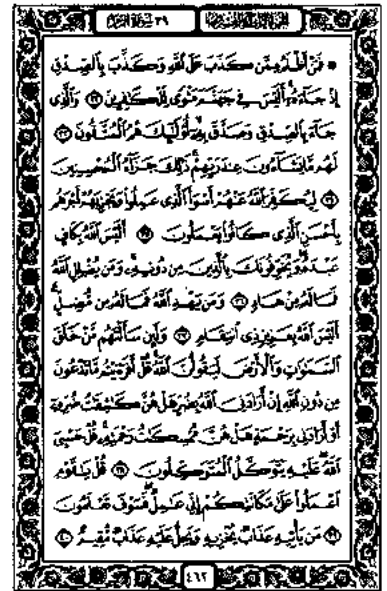 الجزء الرابع والعشرون
٣٩ سورة الزمر
۞ فَمَنْ أَظْلَمُ مِمَّن كَذَبَ عَلَى اللَّهِ وَكَذَّبَ بِالصِّدْقِ
إِذْ جَاءَهُ أَلَيْسَ فِي جَهَنَّمَ مَثْوًى لِّلْكَافِرِينَ ٣٢ وَالَّذِي
جَاءَ بِالصِّدْقِ وَصَدَّقَ بِهِ أُولَٰئِكَ هُمُ الْمُتَّقُونَ ٣٣
لَهُم مَّا يَشَاءُونَ عِندَ رَبِّهِمْ ذَٰلِكَ جَزَاءُ الْمُحْسِنِينَ
٣٤ لِيُكَفِّرَ اللَّهُ عَنْهُمْ أَسْوَأَ الَّذِي عَمِلُوا وَيَجْزِيَهُمْ أَجْرَهُم
بِأَحْسَنِ الَّذِي كَانُوا يَعْمَلُونَ ٣٥ أَلَيْسَ اللَّهُ بِكَافٍ
عَبْدَهُ وَيُخَوِّفُونَكَ بِالَّذِينَ مِن دُونِهِ وَمَن يُضْلِلِ اللَّهُ
فَمَا لَهُ مِنْ هَادٍ ٣٦ وَمَن يَهْدِ اللَّهُ فَمَا لَهُ مِن مُّضِلٍّ
أَلَيْسَ اللَّهُ بِعَزِيزٍ ذِي انتِقَامٍ ٣٧ وَلَئِن سَأَلْتَهُم مَّنْ خَلَقَ
السَّمَٰوَاتِ وَالْأَرْضَ لَيَقُولُنَّ اللَّهُ قُلْ أَفَرَءَيْتُم مَّا تَدْعُونَ
مِن دُونِ اللَّهِ إِنْ أَرَادَنِيَ اللَّهُ بِضُرٍّ هَلْ هُنَّ كَاشِفَاتُ ضُرِّهِ
أَوْ أَرَادَنِي بِرَحْمَةٍ هَلْ هُنَّ مُمْسِكَاتُ رَحْمَتِهِ قُلْ حَسْبِيَ
اللَّهُ عَلَيْهِ يَتَوَكَّلُ الْمُتَوَكِّلُونَ ٣٨ قُلْ يَا قَوْمِ
اعْمَلُوا عَلَىٰ مَكَانَتِكُمْ إِنِّي عَامِلٌ فَسَوْفَ تَعْلَمُونَ
٣٩ مَن يَأْتِيهِ عَذَابٌ يُخْزِيهِ وَيَحِلُّ عَلَيْهِ عَذَابٌ مُّقِيمٌ ٤٠
٤٦٢